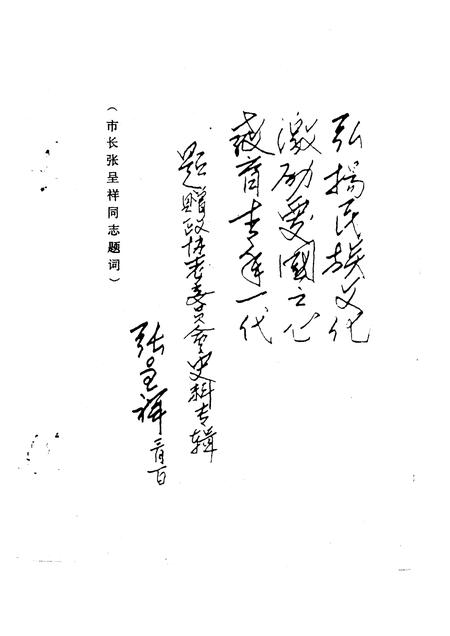 弘扬民族文化
激励爱国之心
教育青年一代
题赠政协志委员会史料专辑
张呈祥
三月一日
（市长张呈祥同志题词）